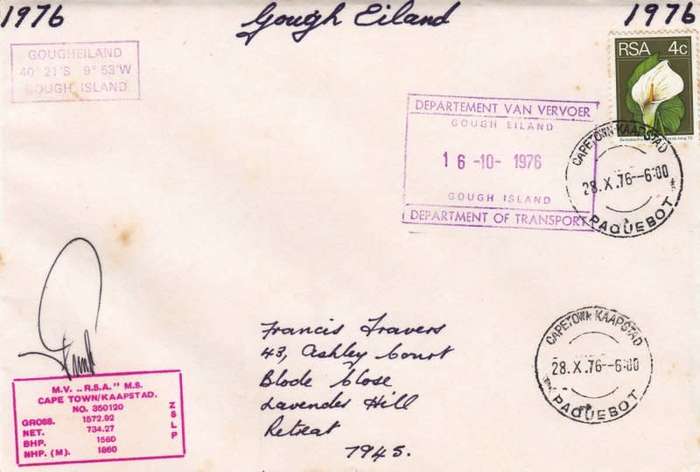 1976
Gough Eiland
1976
GOUGHEILAND
40° 21'S 9° 53'W
GOUGH ISLAND
RSA 4c
DEPARTEMENT VAN VERVOER
GOUGH EILAND
16 -10- 1976
GOUGH ISLAND
DEPARTMENT OF TRANSPORT
CAPETOWN-KAAPSTAD
28.X.76--6:00
PAQUEBOT
Francis Travers
43, Ashley Court
Blode Close
Lavender Hill
Retreat
7945.
CAPETOWN-KAAPSTAD
28.X.76--6:00
PAQUEBOT
M.V. „R.S.A." M.S.
CAPE TOWN/KAAPSTAD.
NO. 350120
GROSS. 1572.92
NET. 734.27
BHP. 1560
NHP. (M). 1860
ZSLP